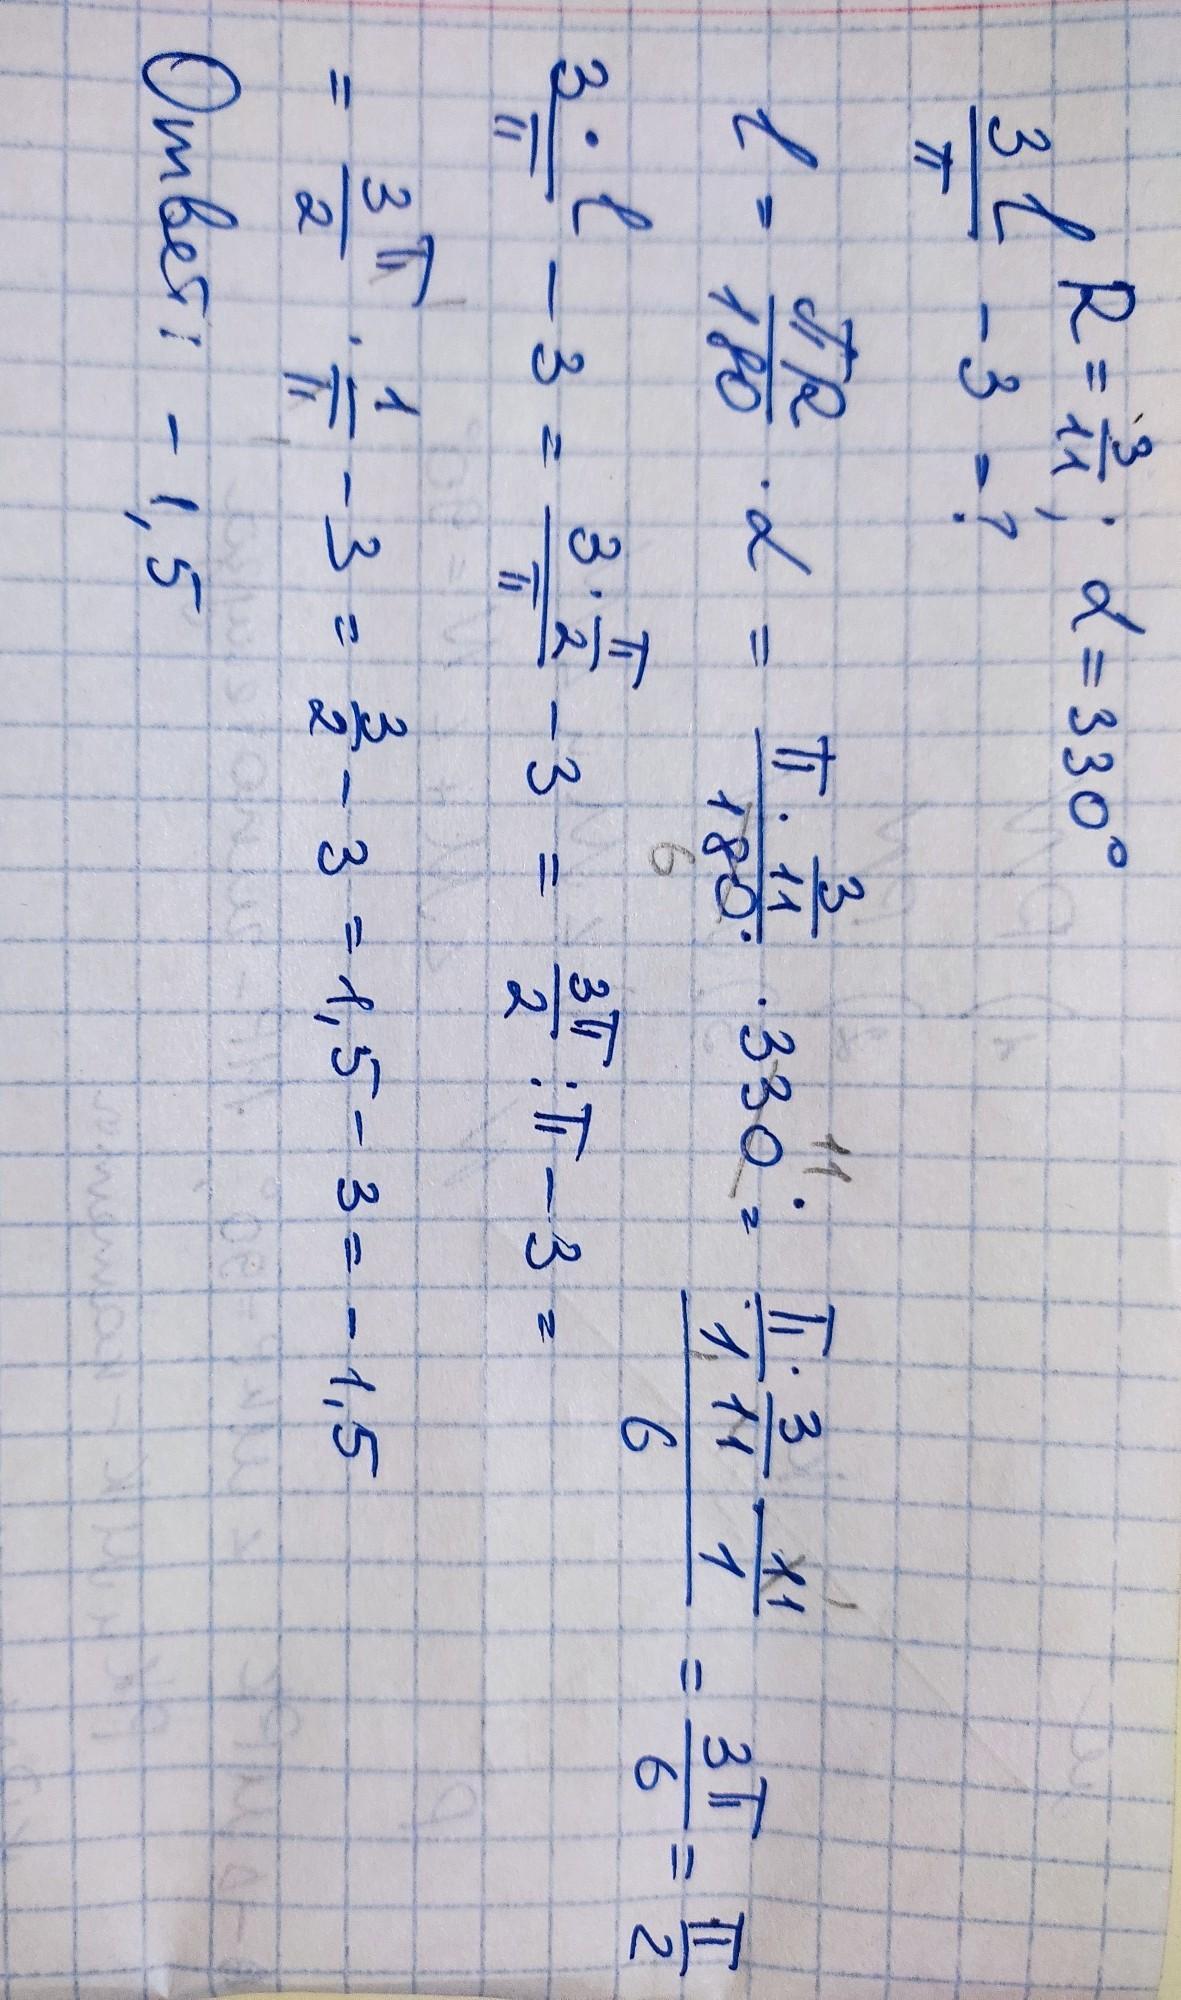 R = 3/11; α = 330°
3ℓ/π - 3 - ?
ℓ = πR/180 · α = π · 3/11 / 180 · 330 = π/1 · 3/11 · 11/1 / 6 = 3π/6 = π/2
6 11
3 · ℓ/π - 3 = 3 · π/2 / π - 3 = 3π/2 : π - 3 =
= 3π/2 · 1/π - 3 = 3/2 - 3 = 1,5 - 3 = - 1,5
Ответ: - 1,5